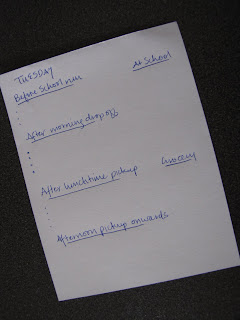 TUESDAY
Before School run
At School
After morning drop off
After lunchtime pickup
Grocery
Afternoon pickup onwards